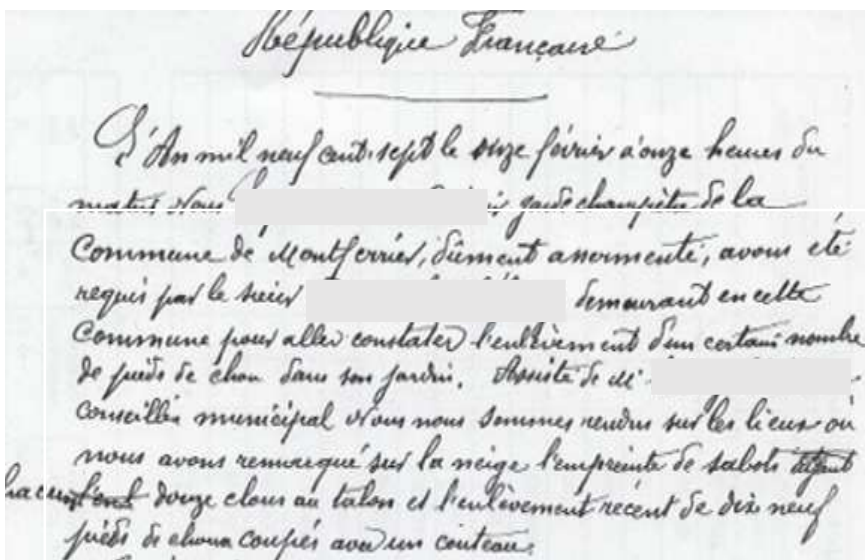 République Française
L'An mil neuf cent sept le onze février à onze heures du
matin Nous garde champêtre de la
Commune de Montferrier, dûment assermenté, avons été
requis par le sieur demeurant en cette
Commune pour aller constater l'enlèvement d'un certain nombre
de pieds de chou dans son jardin. Assisté de Mr
conseiller municipal Nous nous sommes rendus sur les lieux où
nous avons remarqué sur la neige l'empreinte de sabots
douze clous au talon et l'enlèvement récent de dix neuf
pieds de choux coupés avec un couteau.